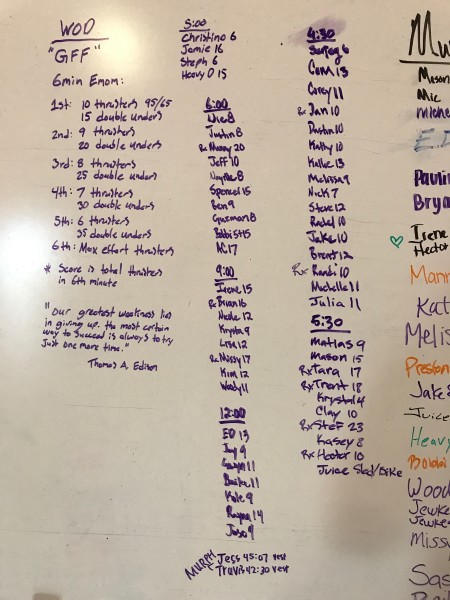 WOD
"GFF"
6min Emom:
1st: 10 thrusters 95/65
15 double unders
2nd: 9 thrusters
20 double unders
3rd: 8 thrusters
25 double unders
4th: 7 thrusters
30 double unders
5th: 6 thrusters
35 double unders
6th: Max effort thrusters
* Score is total thrusters
in 6th minute
"Our greatest weakness lies
in giving up. the most certain
way to succeed is always to try
Just one more time."
Thomas A. Edison
5:00
Christina 6
Jamie 16
Steph 6
Heavy D 15
6:00
Justin 8
Rx Manny 20
Jeff 10
Spencer 15
Ben 9
Guzman 8
AC 17
9:00
Irene 15
Rx Brian 16
Nicole 12
Krystn 9
Lisa 12
Rx Missy 17
Kim 12
Wady 11
12:00
ED 13
Jay 9
11
11
Kyle 9
14
9
MURPH
Jess 45:07 vest
Travis 42:30 vest
4:30
6
Cam 13
Corey 11
Rx Jan 10
Dustin 10
Kathy 10
Kallie 13
Melissa 9
Nick 7
Steve 12
Rachel 10
Jake 10
Brent 12
Rx Randi 10
Michelle 11
Julia 11
5:30
Matias 9
Mason 15
Rx Tara 17
Rx Trent 18
Krystal 4
Clay 10
Rx Stef 23
Kasey 8
Rx Hector 10
Juice Sled/Bike
Mu
Mason
Mic
Miche
E.D
Paulin
Brya
Irene
Hector
Mann
Kat
Melis
Preston
Jake
Juice
Heavy
Bobbi
Wood
Jewke
Jewke
Missy
Sas